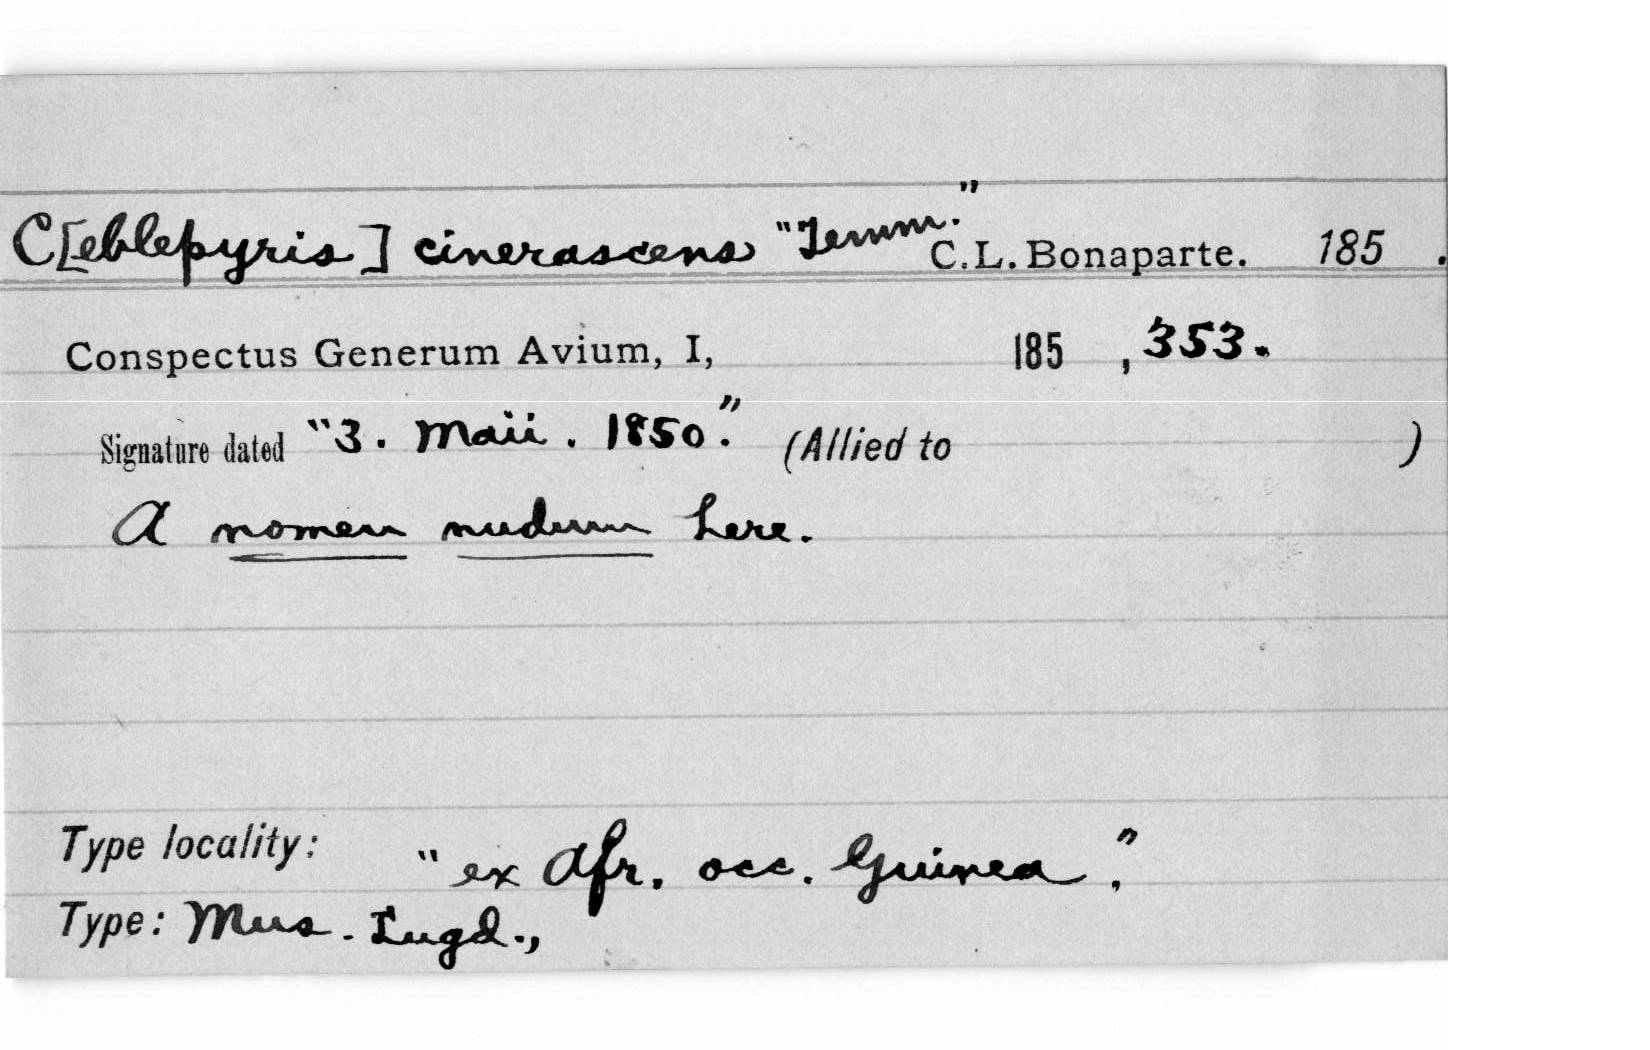 C[eblepyris] cinerascens "Temm." C.L. Bonaparte. 185 .
Conspectus Generum Avium, I, 185 , 353.
Signature dated "3. Maii. 1850." (Allied to )
A nomen nudum here.
Type locality: "ex Afr. occ. Guinea",
Type: Mus. Lugd.,